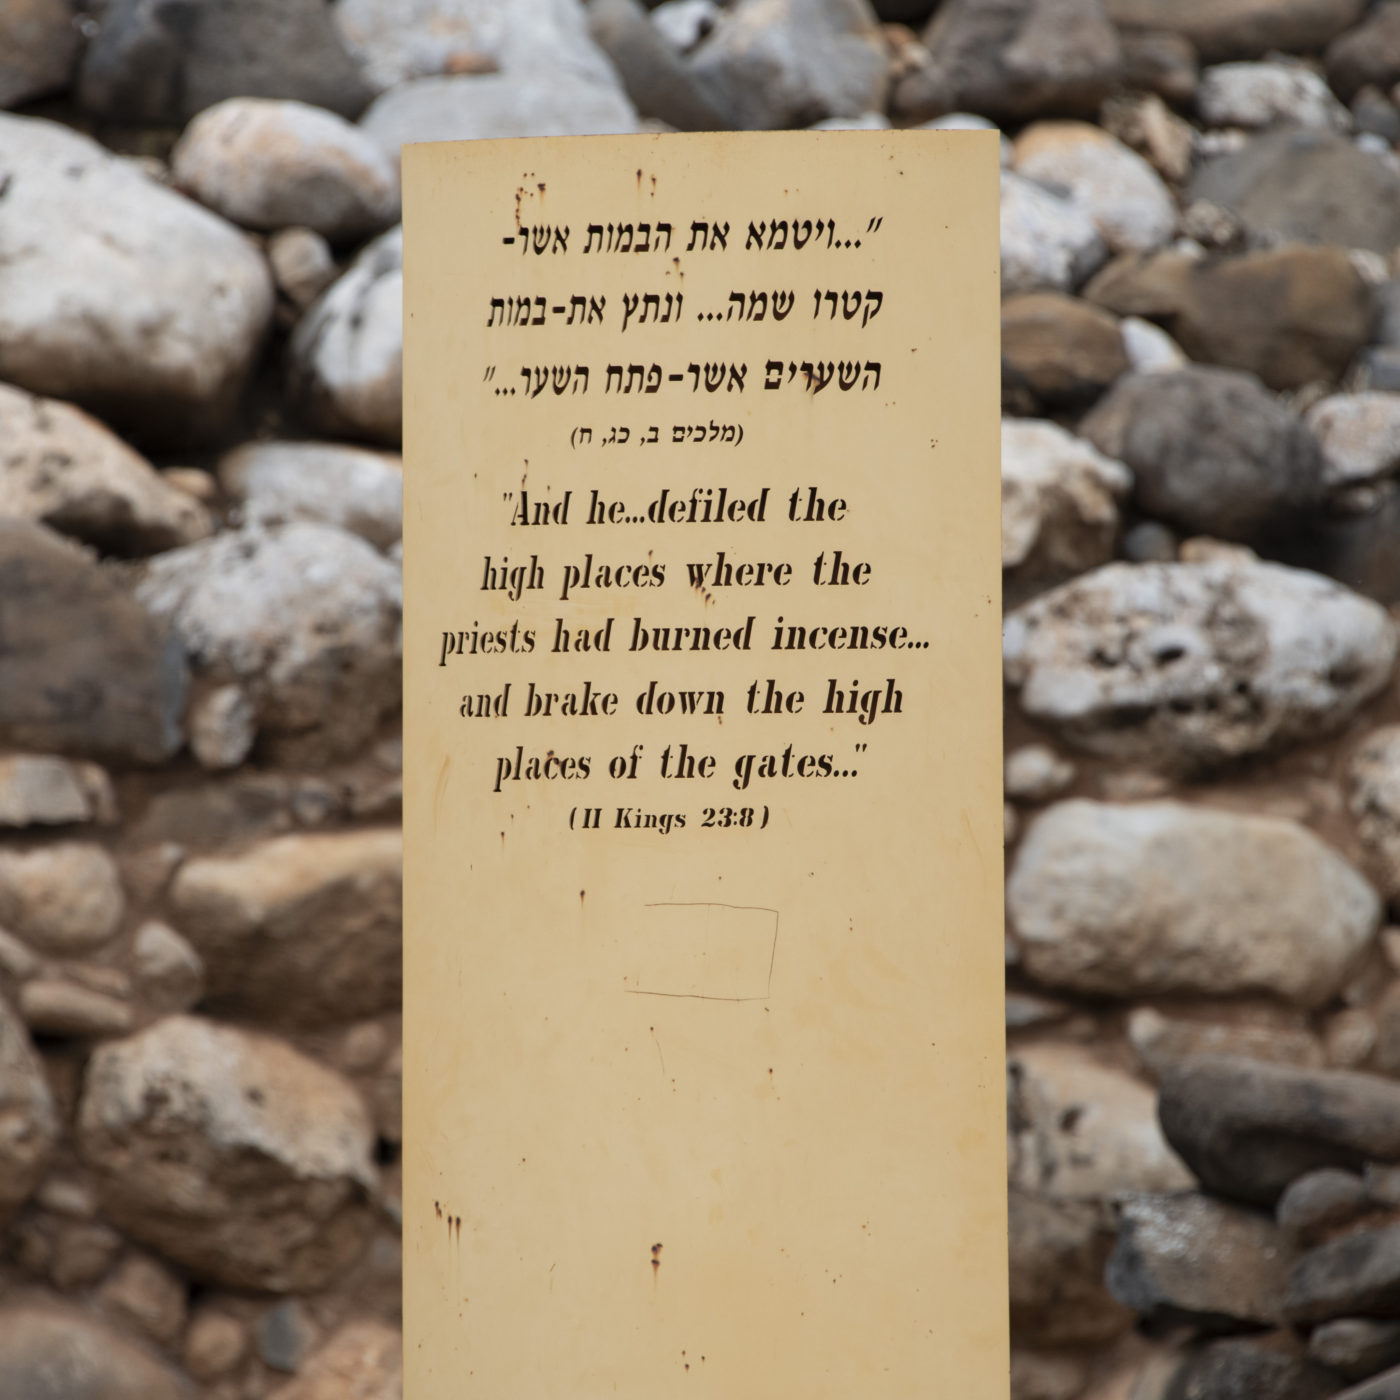 "...ויטמא את הבמות אשר-
קטרו שמה... ונתץ את-במות
השערים אשר-פתח השער..."
(מלכים ב, כג, ח)
"And he...defiled the
high places where the
priests had burned incense...
and brake down the high
places of the gates..."
(II Kings 23:8)